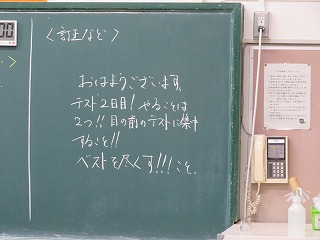 <訂正など>
おはようございます。
テスト2日目!やることは
2つ!!目の前のテストに集中
すること!!
ベストを尽くす!!!こと。